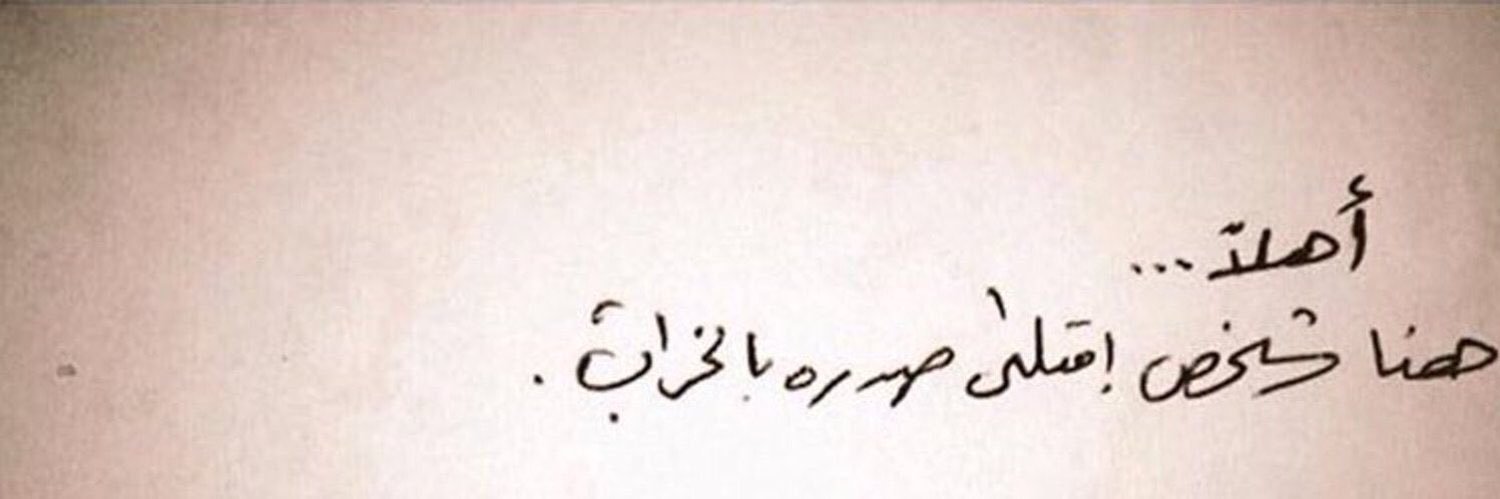 أهلاً ...
هنا شخص إمتلئ صدره بالخراب .